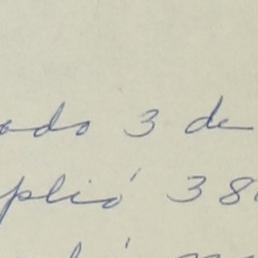 ado 3 de
plió 38